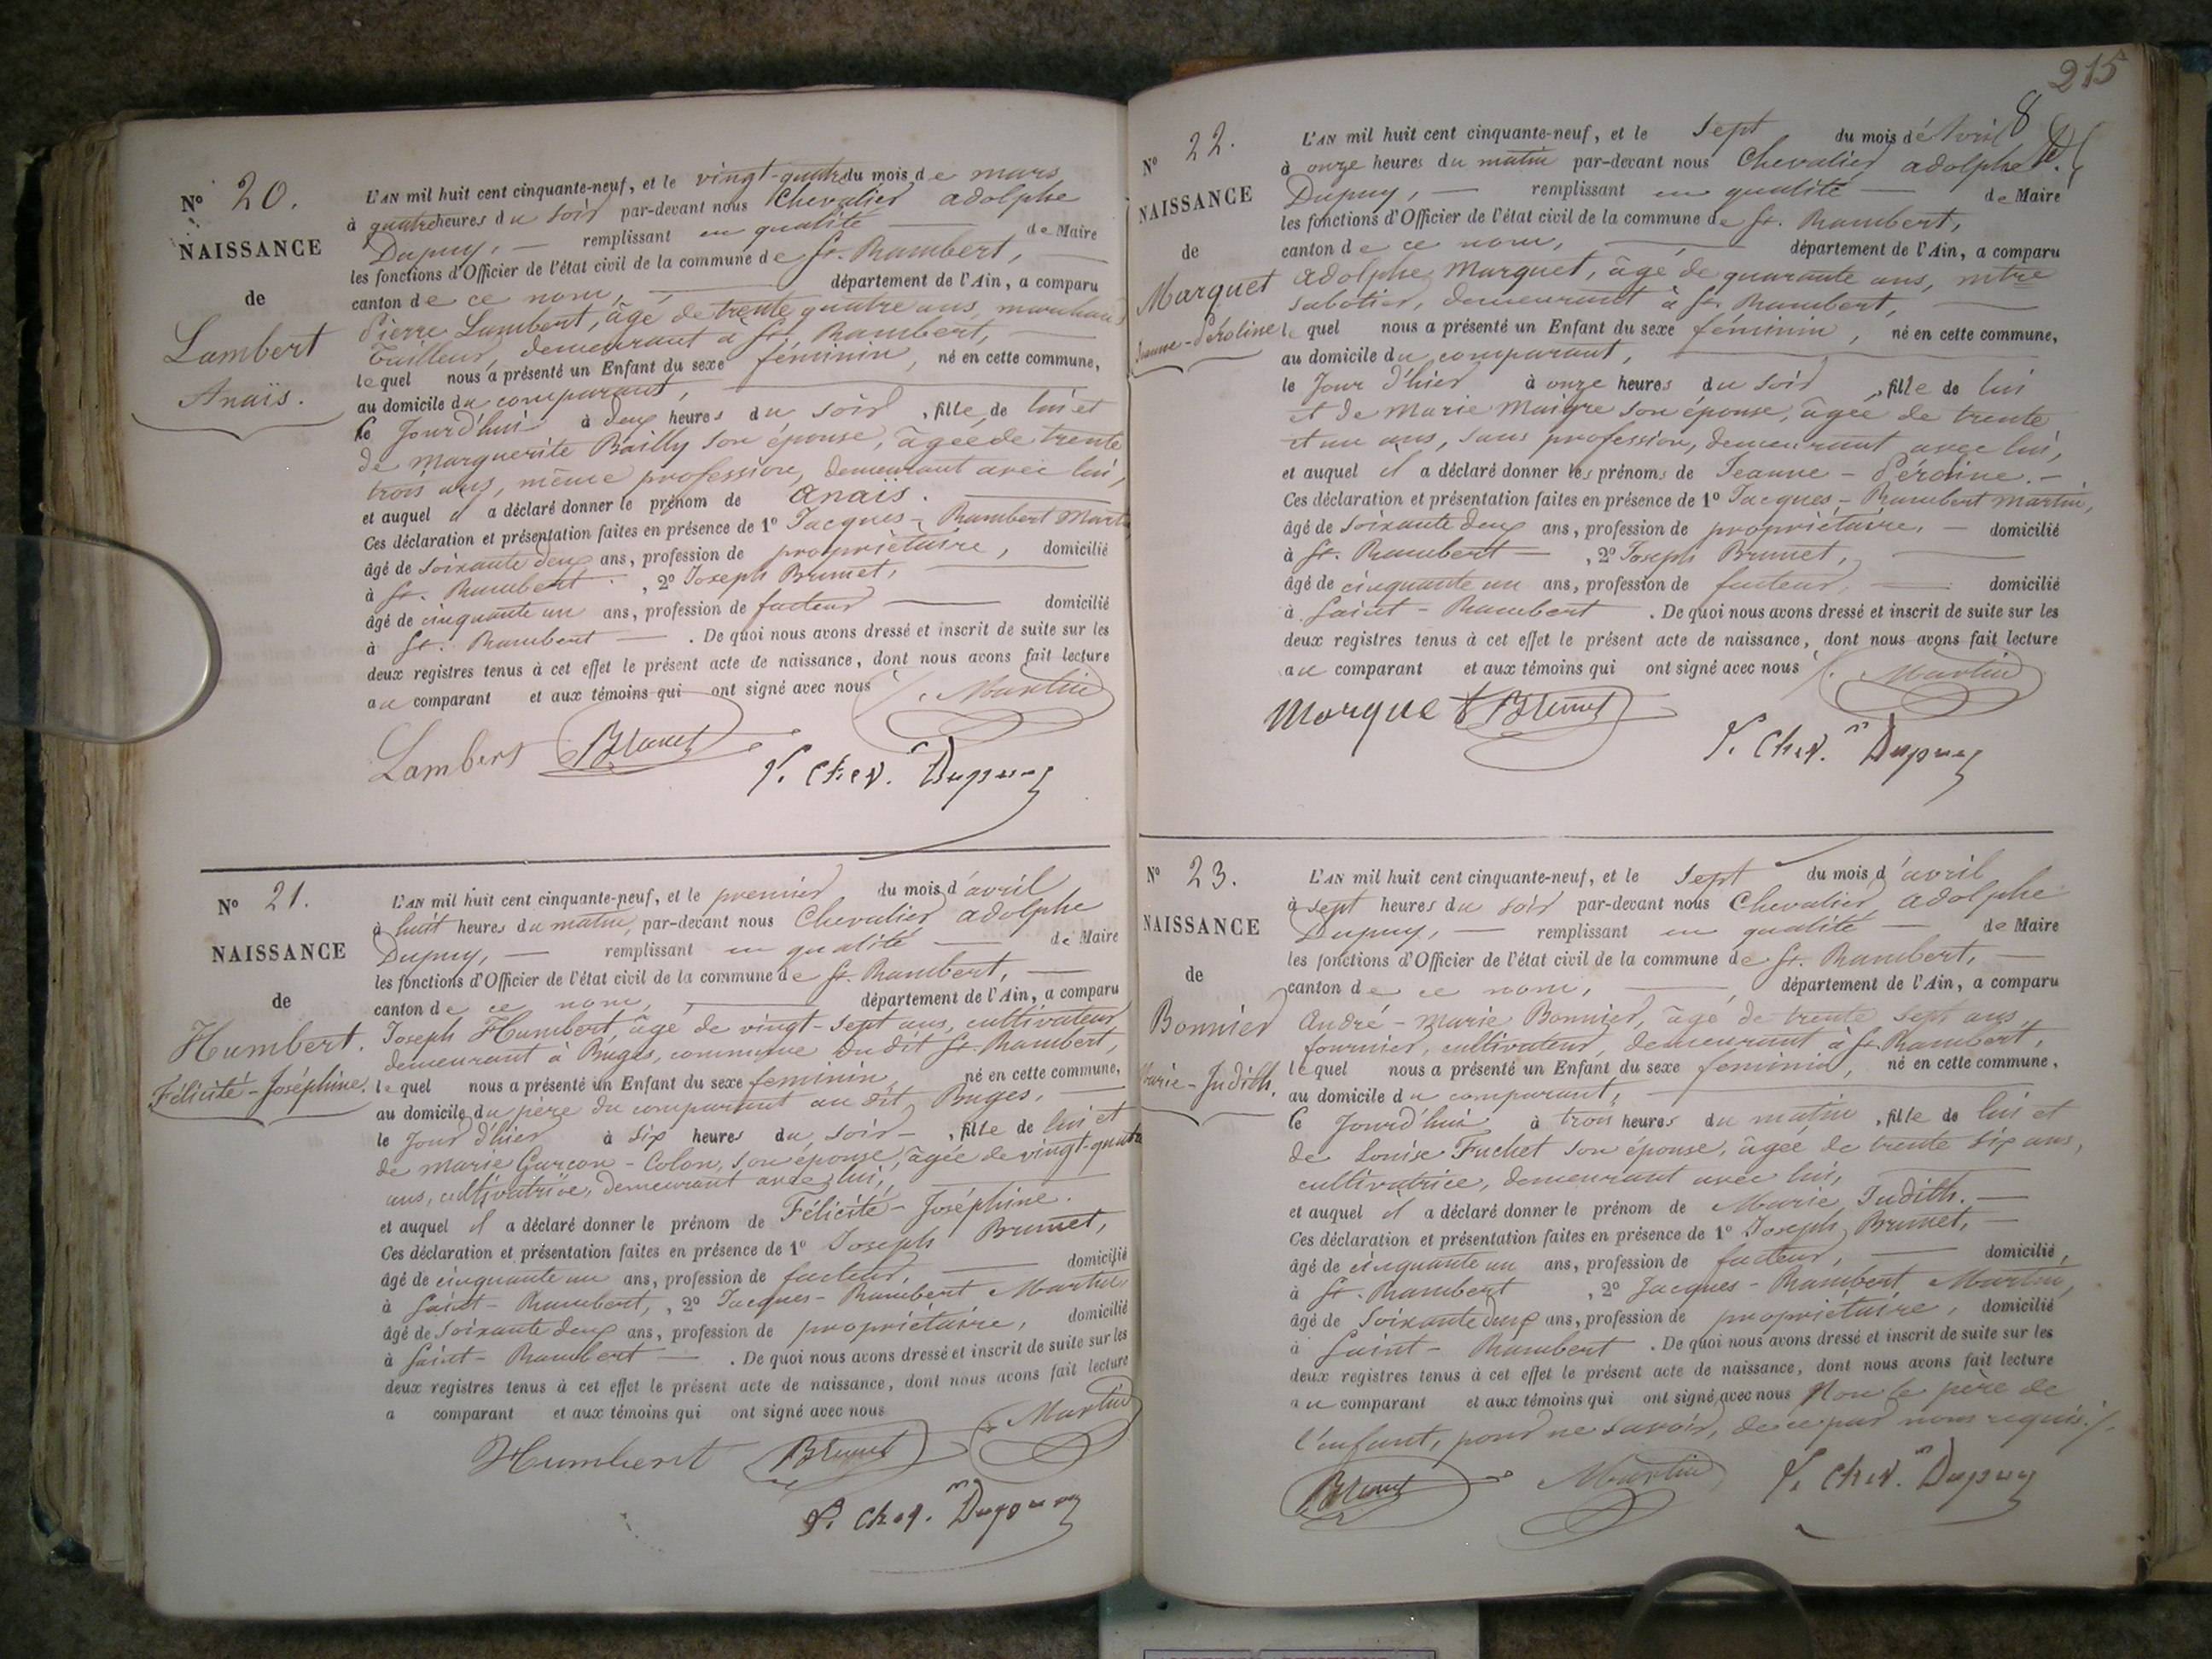 N° 20.
NAISSANCE
de
Lambert
Anaïs.
L'AN mil huit cent cinquante-neuf, et le vingt-quatre du mois de mars
à quatre heures du soir par-devant nous Chevalier adolphe
Dupuy, — remplissant en qualité — de Maire
les fonctions d'Officier de l'état civil de la commune de St. Rambert, —
canton de ce nom, — département de l'Ain, a comparu
Pierre Lambert, âgé de trente quatre ans, marchand
Tailleur, demeurant à St. Rambert, —
lequel nous a présenté un Enfant du sexe féminin, né en cette commune,
au domicile du comparant, —
le Jourd'hui à deux heures du soir, fille de lui et
de Marguerite Bailly son épouse, âgée de trente
trois ans, même profession, demeurant avec lui,
et auquel il a déclaré donner le prénom de Anaïs. —
Ces déclaration et présentation faites en présence de 1° Jacques-Rambert Martin
âgé de soixante deux ans, profession de propriétaire, domicilié
à St. Rambert, 2° Joseph Brunet, —
âgé de cinquante un ans, profession de facteur — domicilié
à St. Rambert — . De quoi nous avons dressé et inscrit de suite sur les
deux registres tenus à cet effet le présent acte de naissance, dont nous avons fait lecture
au comparant et aux témoins qui ont signé avec nous
Martin
Lambert Brunet
Chev. Dupuy
N° 21.
NAISSANCE
de
Humbert.
Félicité-Joséphine.
L'AN mil huit cent cinquante-neuf, et le premier du mois d'avril
à huit heures du matin, par-devant nous Chevalier adolphe
Dupuy, — remplissant en qualité — de Maire
les fonctions d'Officier de l'état civil de la commune de St. Rambert, —
canton de ce nom, — département de l'Ain, a comparu
Joseph Humbert, âgé de vingt-sept ans, cultivateur
demeurant à Buges, commune dudit St. Rambert,
lequel nous a présenté un Enfant du sexe feminin, né en cette commune,
au domicile du père du comparant au dit Buges, —
le Jour d'hier à six heures du soir —, fille de lui et
de marie Garçon-Colon, son épouse, âgée de vingt-quatre
ans, cultivatrice, demeurant avec lui, —
et auquel il a déclaré donner le prénom de Félicité-Joséphine.
Ces déclaration et présentation faites en présence de 1° Joseph Brunet,
âgé de cinquante un ans, profession de facteur, — domicilié
à Saint-Rambert, , 2° Jacques-Rambert Martin
âgé de soixante deux ans, profession de propriétaire, domicilié
à Saint-Rambert — . De quoi nous avons dressé et inscrit de suite sur les
deux registres tenus à cet effet le présent acte de naissance, dont nous avons fait lecture
a comparant et aux témoins qui ont signé avec nous
Martin
Humbert Brunet
Chev. Dupuy
215
8
N° 22.
NAISSANCE
de
Marquet
Jeanne-Péroline
L'AN mil huit cent cinquante-neuf, et le sept du mois d'avril
à onze heures du matin par-devant nous Chevalier adolphe
Dupuy, — remplissant en qualité — de Maire
les fonctions d'Officier de l'état civil de la commune de St. Rambert,
canton de ce nom, — département de l'Ain, a comparu
adolphe Marquet, âgé de quarante ans, mtre
sabotier, demeurant à St. Rambert, —
lequel nous a présenté un Enfant du sexe féminin, né en cette commune,
au domicile du comparant, —
le Jour d'hier à onze heures du soir, fille de lui
et de Marie Maigre son épouse, âgée de trente
et un ans, sans profession, demeurant avec lui,
et auquel il a déclaré donner les prénoms de Jeanne-Péroline. —
Ces déclaration et présentation faites en présence de 1° Jacques-Rambert Martin,
âgé de soixante deux ans, profession de propriétaire, — domicilié
à St. Rambert —, 2° Joseph Brunet, —
âgé de cinquante un ans, profession de facteur, — domicilié
à Saint-Rambert . De quoi nous avons dressé et inscrit de suite sur les
deux registres tenus à cet effet le présent acte de naissance, dont nous avons fait lecture
au comparant et aux témoins qui ont signé avec nous
Martin
Marquet Brunet
Chev. Dupuy
N° 23.
NAISSANCE
de
Bonnier
Marie-Judith.
L'AN mil huit cent cinquante-neuf, et le sept du mois d'avril
à sept heures du soir par-devant nous Chevalier adolphe
Dupuy, — remplissant en qualité — de Maire
les fonctions d'Officier de l'état civil de la commune de St. Rambert, —
canton de ce nom, — département de l'Ain, a comparu
André-Marie Bonnier, âgé de trente sept ans,
fournier, cultivateur, demeurant à St. Rambert,
lequel nous a présenté un Enfant du sexe feminin, né en cette commune,
au domicile du comparant, —
le Jourd'hui à trois heures du matin, fille de lui et
de Louise Fuchet son épouse, âgée de trente six ans,
cultivatrice, demeurant avec lui,
et auquel il a déclaré donner le prénom de Marie Judith. —
Ces déclaration et présentation faites en présence de 1° Joseph Brunet, —
âgé de cinquante un ans, profession de facteur, — domicilié,
à St. Rambert, 2° Jacques-Rambert Martin,
âgé de soixante deux ans, profession de propriétaire, domicilié
à Saint-Rambert . De quoi nous avons dressé et inscrit de suite sur les
deux registres tenus à cet effet le présent acte de naissance, dont nous avons fait lecture
au comparant et aux témoins qui ont signé avec nous Non le père de
l'enfant, pour ne savoir, de ce par nous requis.
Brunet Martin Chev. Dupuy